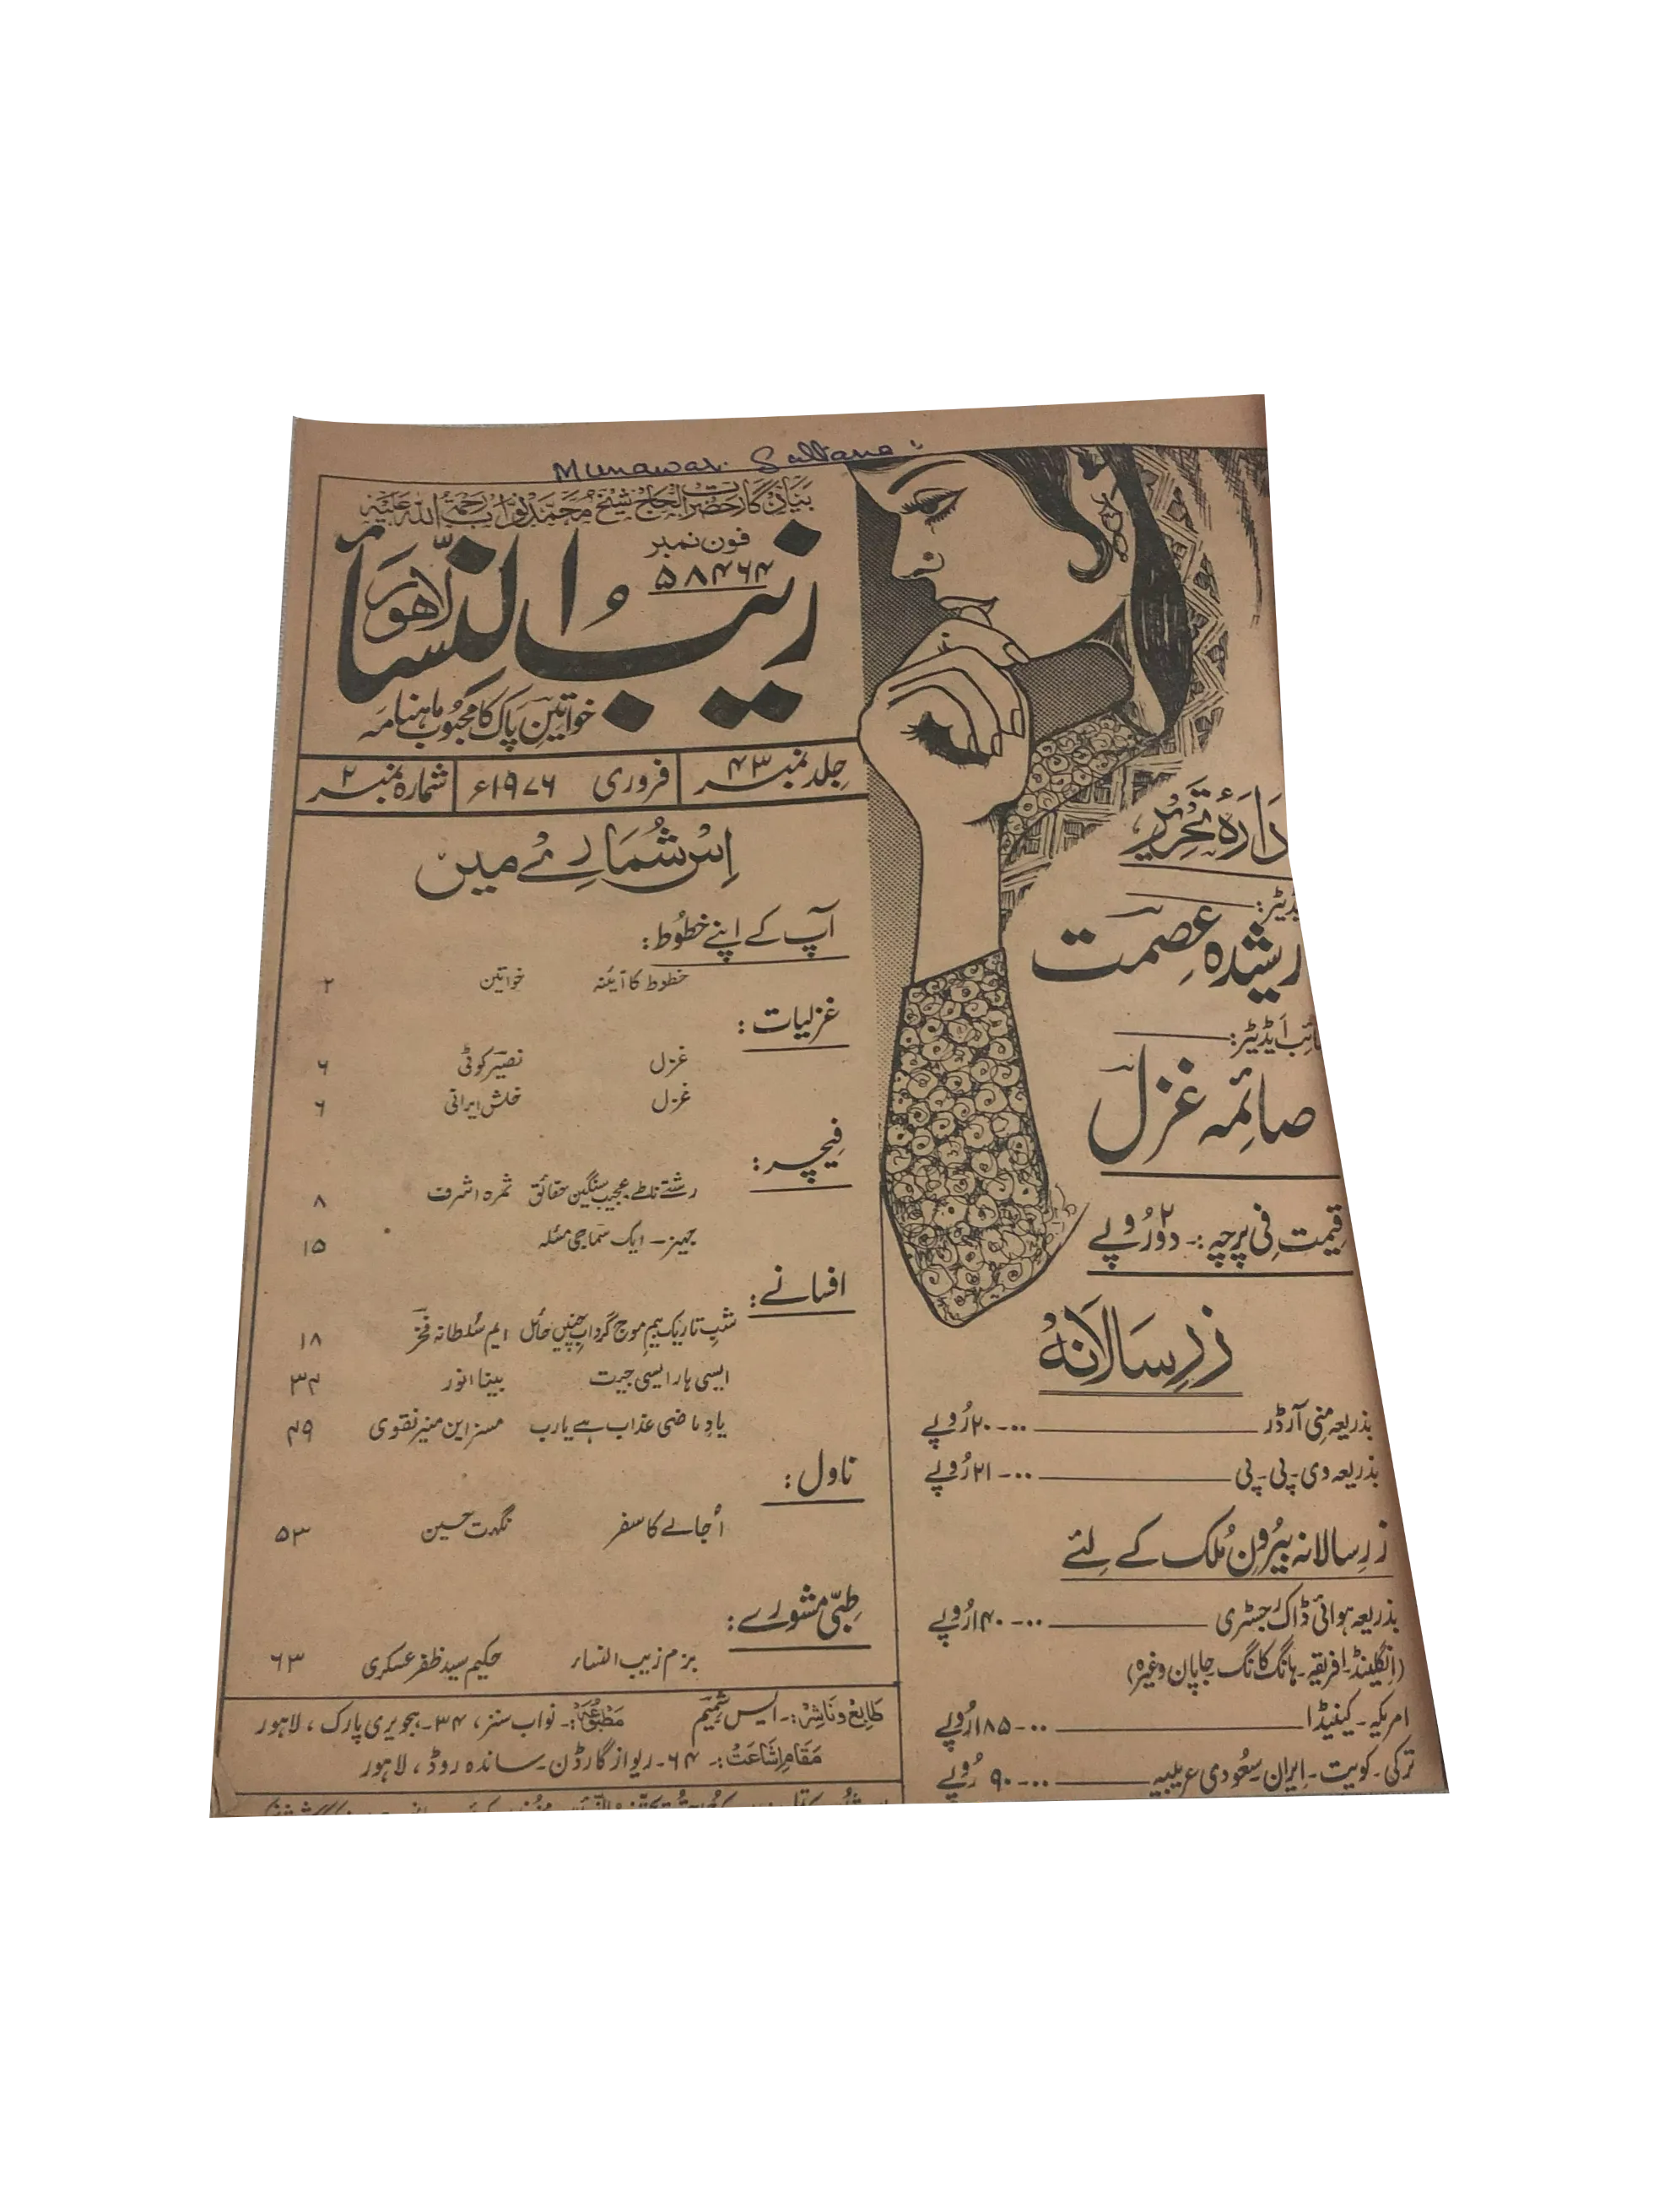 Munawar Sultana
بیادگار حضرت الحاج شیخ محمد نواب رحمۃ اللہ علیہ
فون نمبر
۵۸۴۶۴
زیب النساء
لاہور
خواتینِ پاک کا محبوب ماہنامہ
جلد نمبر ۴۳
فروری ۱۹۷۶ء
شمارہ نمبر ۲
اِس شمارے میں
آپ کے اپنے خطوط:
خطوط کا آئینہ خواتین ۲
غزلیات:
غزل نصیر کوٹی ۶
غزل خلش ایرانی ۶
فیچر:
رشتے ناطے عجیب سنگین حقائق ثمرہ اشرف ۸
جہیز - ایک سماجی مسئلہ ۱۵
افسانے:
شبِ تاریک بیمِ موج گردابِ چنیں حائل ایم سلطانہ فخر ۱۸
ایسی ہار ایسی جیت بینا انور ۳۴
یادِ ماضی عذاب ہے یارب مسز این منیر نقوی ۴۹
ناول:
اُجالے کا سفر نگہت حسین ۵۳
طبّی مشورے:
بزم زیب النساء حکیم سید ظفر عسکری ۶۳
طابع و ناشر:- ایس شمیم مطبوعہ:- نواب سنز، ۳۴-ہجویری پارک، لاہور
مقام اشاعت:- ۶۴-ریواز گارڈن-ساندہ روڈ، لاہور
دارۂ تحریر
ڈیٹر:
رشیدہ عصمت
ائب ایڈیٹر:
صائمہ غزل
قیمت فی پرچہ:- دو ۲ روپے
زرِ سالانہ
بذریعہ منی آرڈر ۰۰-۲۰ روپے
بذریعہ وی-پی-پی ۰۰-۲۱ روپے
زرِ سالانہ بیرون مُلک کے لئے
بذریعہ ہوائی ڈاک رجسٹری ۰۰-۱۴۰ روپے
(انگلینڈ-افریقہ-ہانگ کانگ-جاپان وغیرہ)
امریکہ-کینیڈا ۰۰-۱۸۵ روپے
ترکی-کویت-ایران-سعودی عریبیہ ۰۰-۹۰ روپے